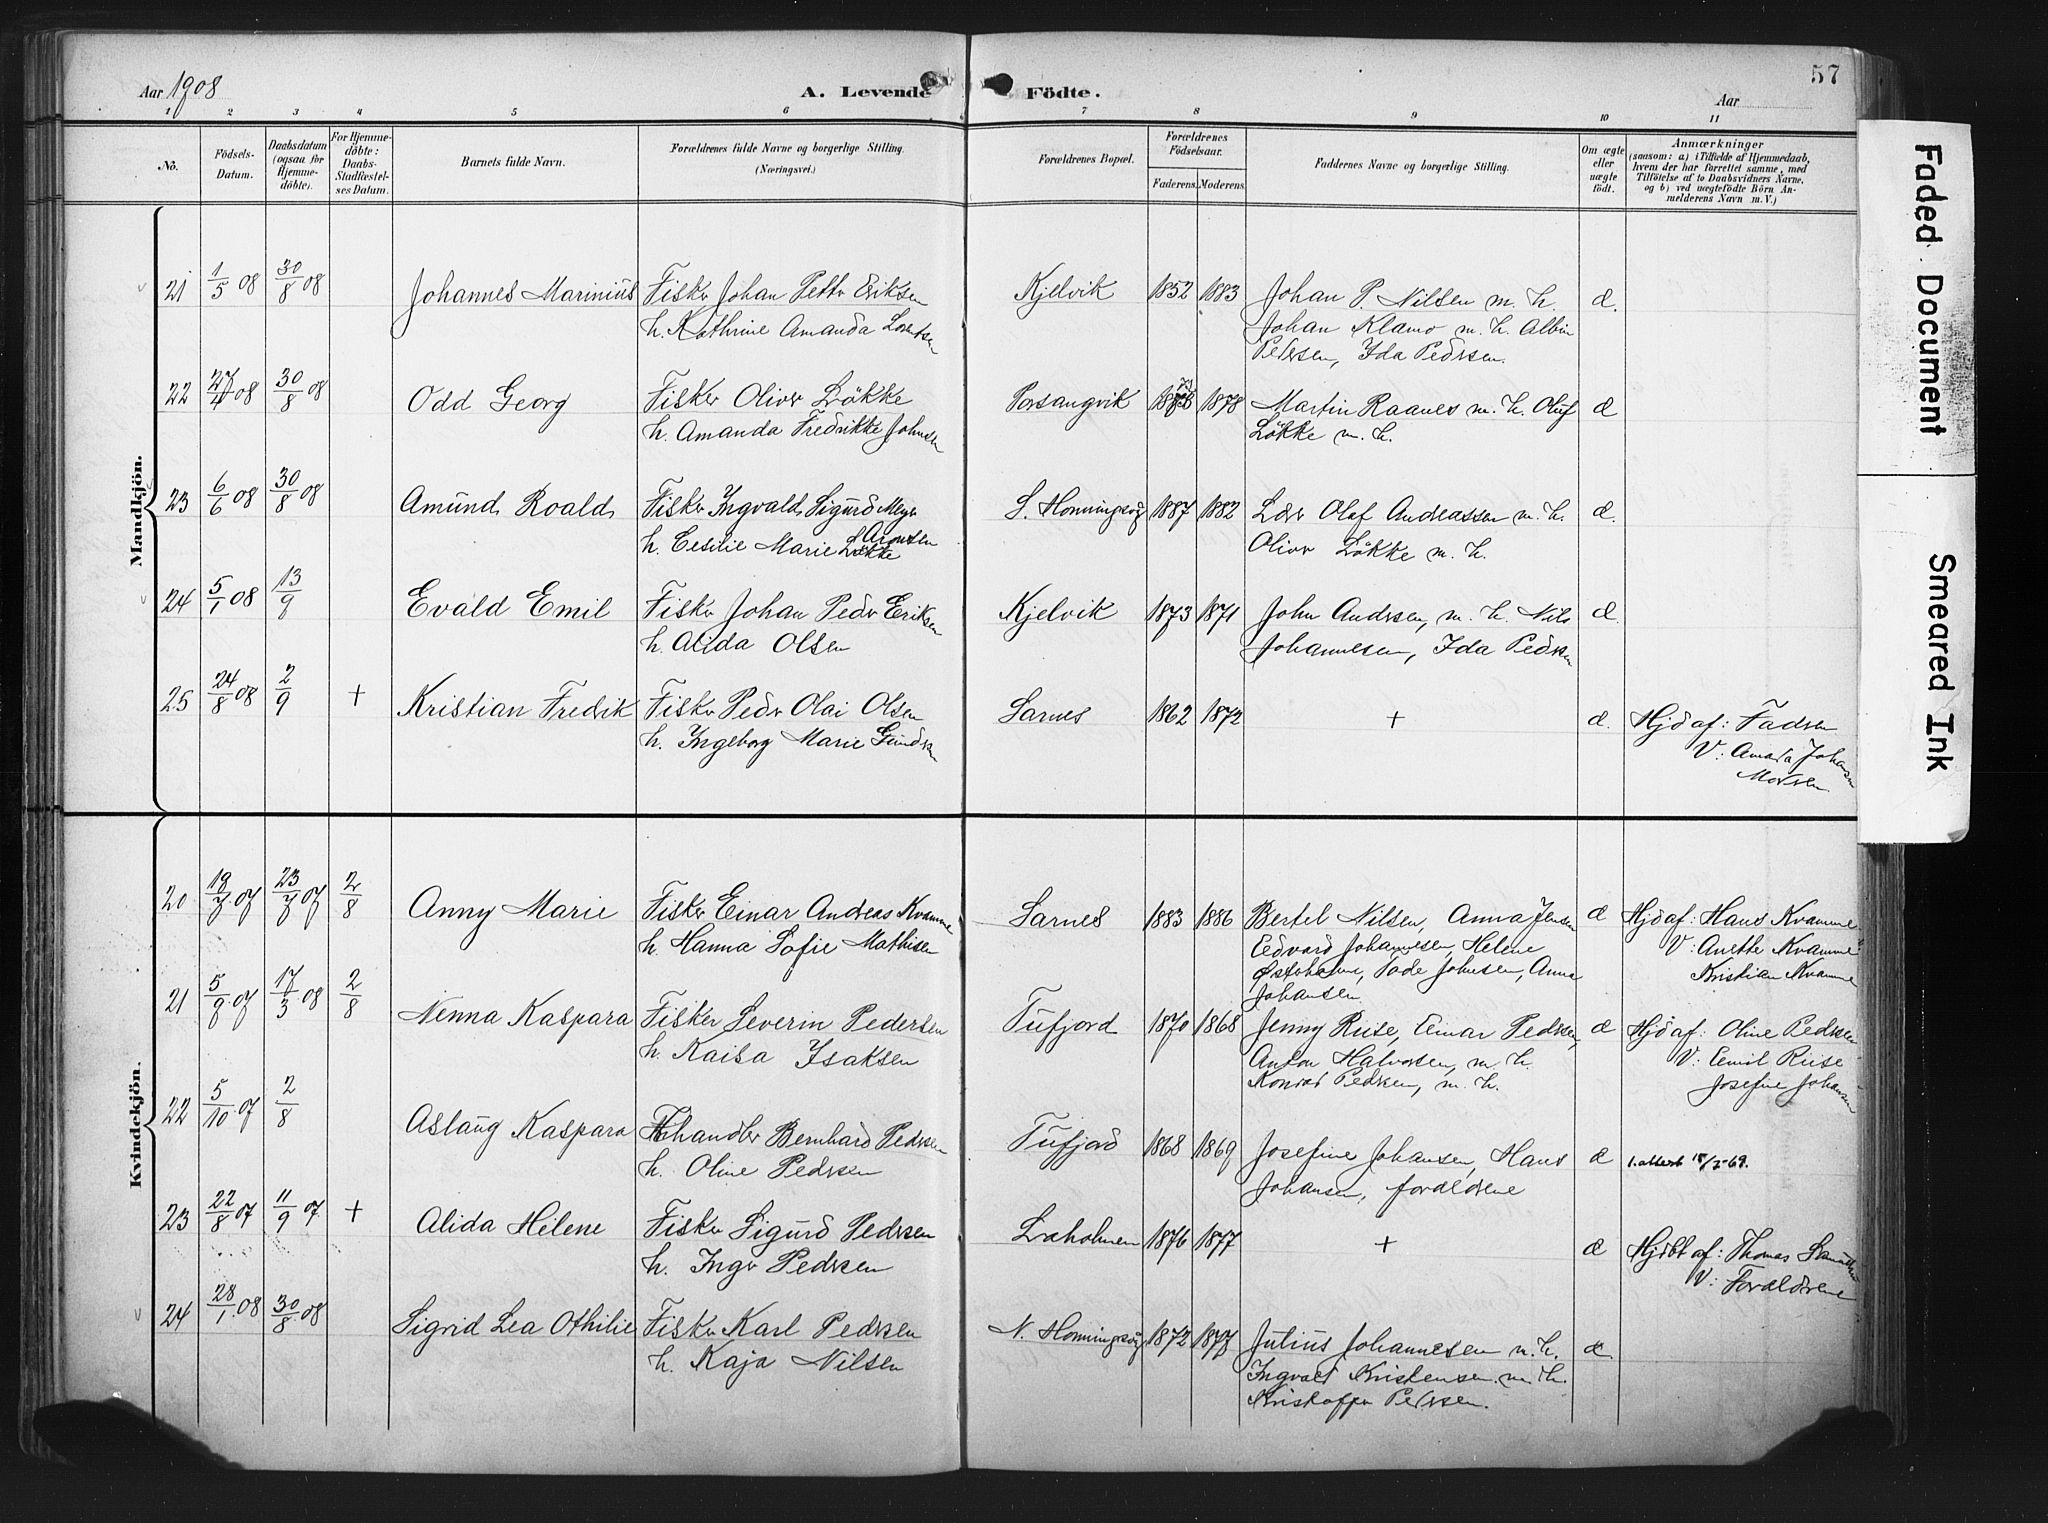 Aar 1908
A. Levende Födte.
Aar
57
1 2 3 4 5 6 7 8 9 10 11
No.
Födsels-Datum.
Daabsdatum (ogsaa for Hjemme-döbte).
For Hjemme-döbte: Daabs-Stadfæstel-ses Datum.
Barnets fulde Navn.
Forældrenes fulde Navne og borgerlige Stilling.
(Næringsvei.)
Forældrenes Bopæl.
Forældrenes Födselsaar.
Faderens. Moderens.
Faddernes Navne og borgerlige Stilling.
Om ægte eller uægte födt.
Anmærkninger
(saasom: a) i Tilfælde af Hjemmedaab,
hvem der har forrettet samme, med
Tilföielse af to Daabsvidners Navne,
og b) ved uægtefödte Börn An-
melderens Navn m. V.)
Mandkjön.
21 1/5 08 30/8 08 Johannes Marinius Fisker Johan Petter Eriksen Kjelvik 1852 1883 Johan P. Nilsen m. h. d.
h. Kathrine Amanda Lorentsen Johan Klamo m. h. Albin
Pedersen, Ida Pedersen.
22 27/4 08 30/8 08 Odd Georg Fisker Oliver Løkke Porsangvik 1878 Martin Raanes m. h. Oluf d
h. Amanda Fredrikke Johnsen Løkke m. h.
23 6/6 08 30/8 08 Amund Roald Fisker Ingvald Sigurd Meyer S. Honningsvåg 1887 1882 Lærer Olaf Andreassen m. h. d.
Aronsen
h. Cesilie Marie Løkke Oliver Løkke m. h.
24 5/1 08 13/9 Evald Emil Fisker Johan Peder Eriksen Kjelvik 1873 1871 John Andersen, m. h. Nils d.
h. Alida Olsen Johannesen, Ida Pedersen
25 24/8 08 2/9 + Kristian Fredrik Fisker Peder Olai Olsen Sarnes 1862 1872 + d. Hjd af: Faderen
h. Ingeborg Marie Gundersen V: Amanda Johansen
Moderen.
Kvindekjön.
20 19/7 07 23/7 07 2/8 Anny Marie Fisker Einar Andreas Kvamme Sarnes 1883 1886 Bertel Nilsen, Anna Jensen d Hjd af: Hans Kvamme
h. Hanna Sofie Mathisen Edvard Johannesen, Helene V: Anette Kvamme
Johnsen, Anna Kristian Kvamme
Johansen
21 5/9 07 17/3 08 2/8 Nenna Kaspara Fisker Severin Pedersen Tufjord 1870 1868 Jenny Riise, Einar Pedersen, d Hjd af: Oline Pedersen
h. Kaisa Isaksen Anton Halvorsen, m. h. V: Emil Riise
Konrad Pedersen, m. h. Josefine Johansen
22 5/10 07 2/8 Aslaug Kaspara Fhandler Bernhard Pedersen Tufjord 1868 1869 Josefine Johansen, Hans d 1. attest 15/7-69.
h. Oline Pedersen Johansen, forældrene
23 22/8 07 11/9 07 + Alida Helene Fisker Sigurd Pedersen Laholmen 1876 1877 + d Hjdbt af: Thomas
h. Inger Pedersen V: Forældrene
24 28/1 08 30/8 08 Sigrid Lea Othilie Fisker Karl Pedersen N. Honningsvåg 1872 Julius Johannesen m. h. d.
h. Kaja Nilsen Ingvald Kristensen m. h.
Kristoffer Pedersen.
Faded Document
Smeared Ink